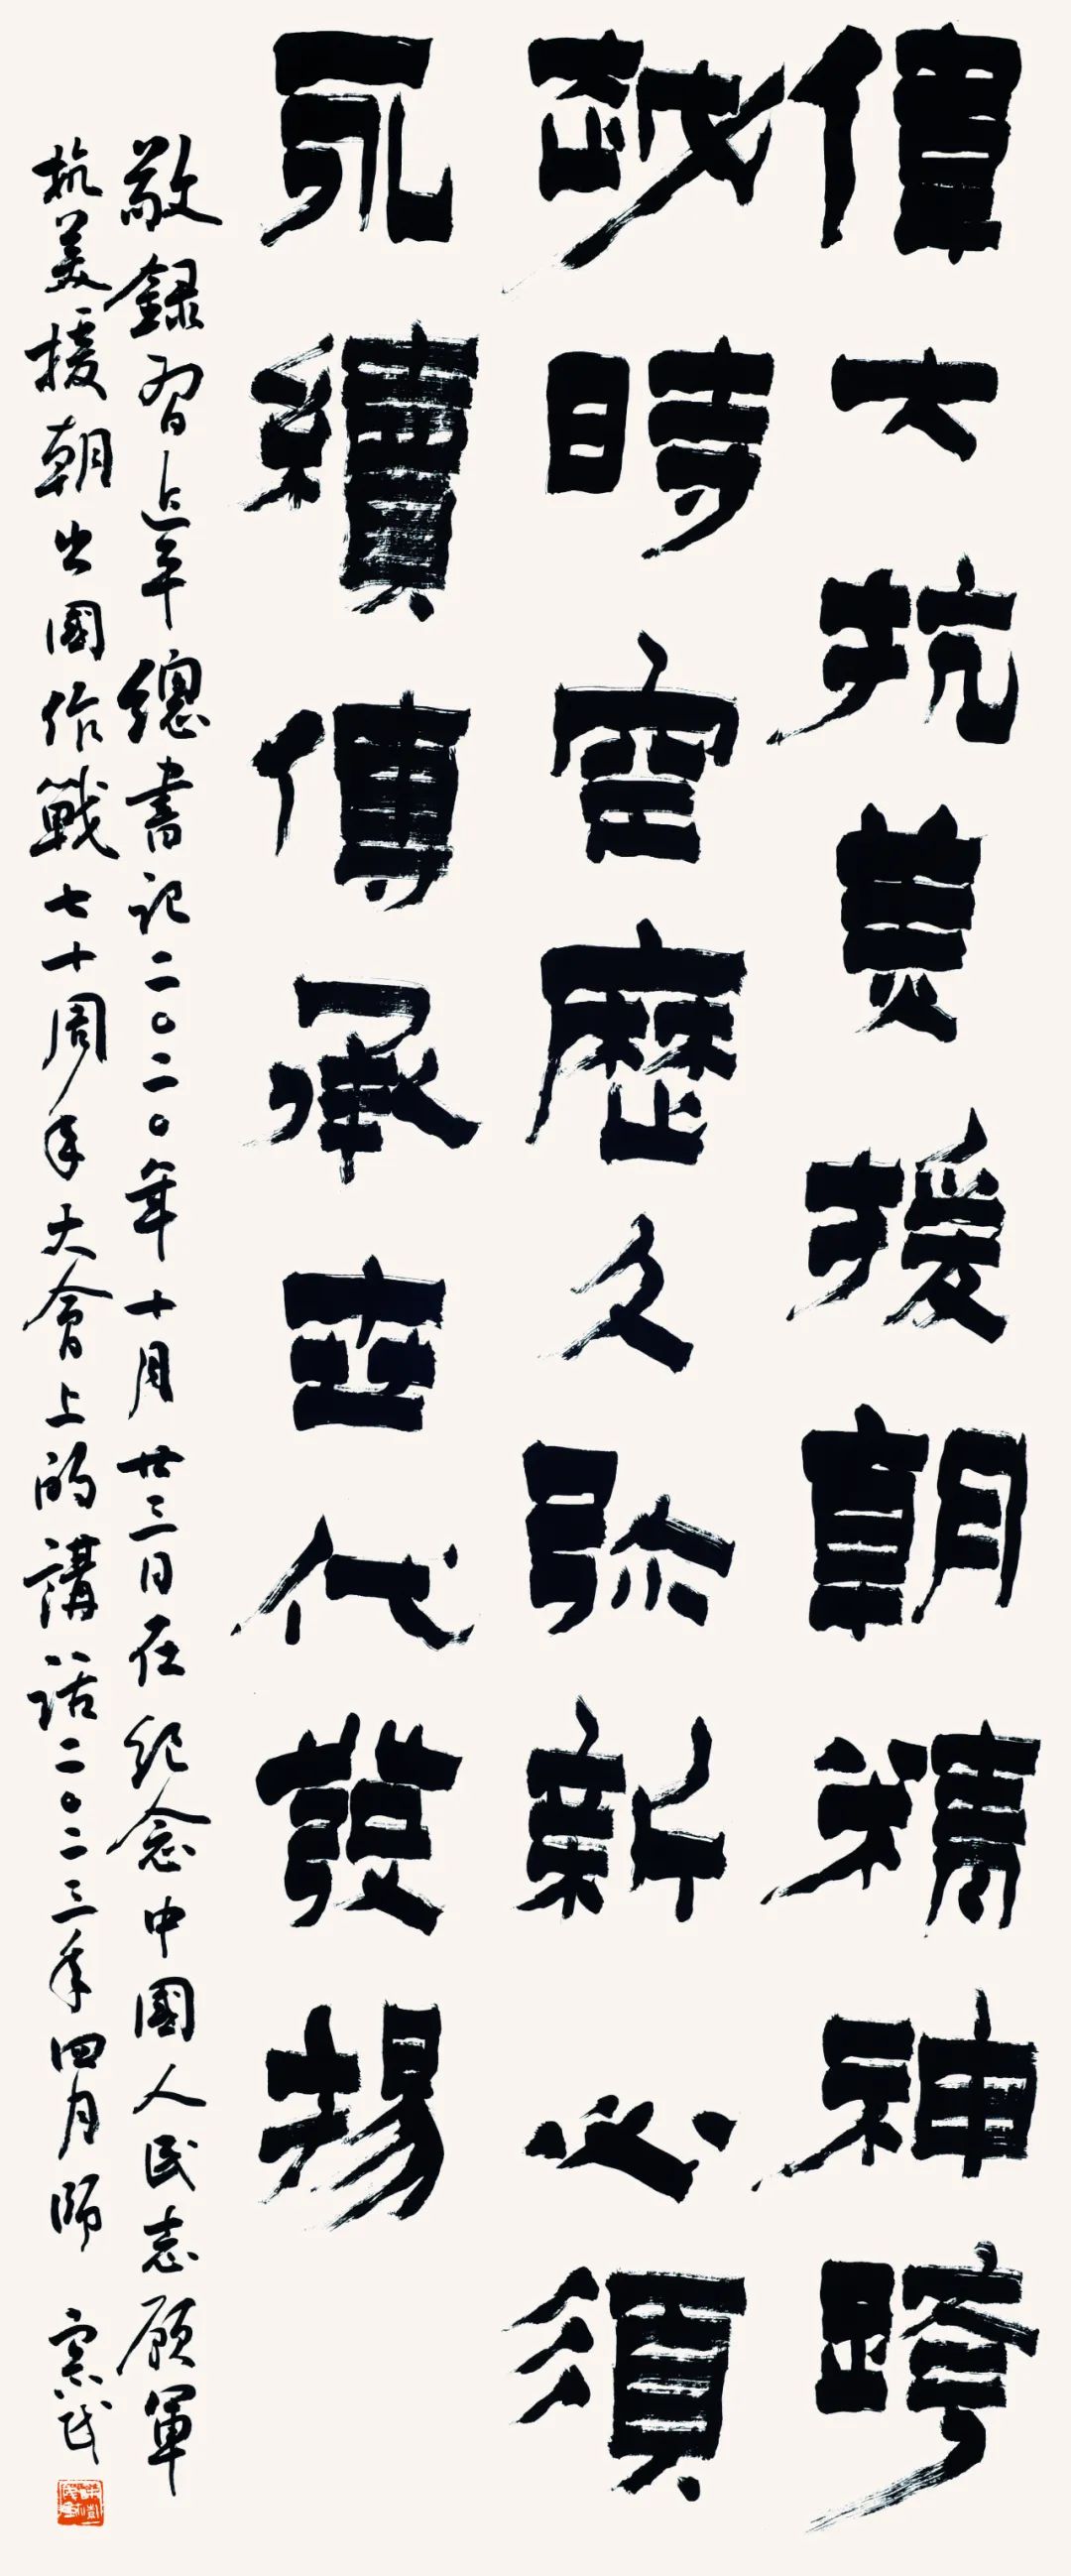 偉大抗美援朝精神跨
越時空歷久弥新必須
永續傳承世代發揚
敬録習近平總書記二〇二〇年十月廿三日在紀念中國人民志願軍
抗美援朝出國作戰七十周年大會上的講話二〇二三年四月師宗民